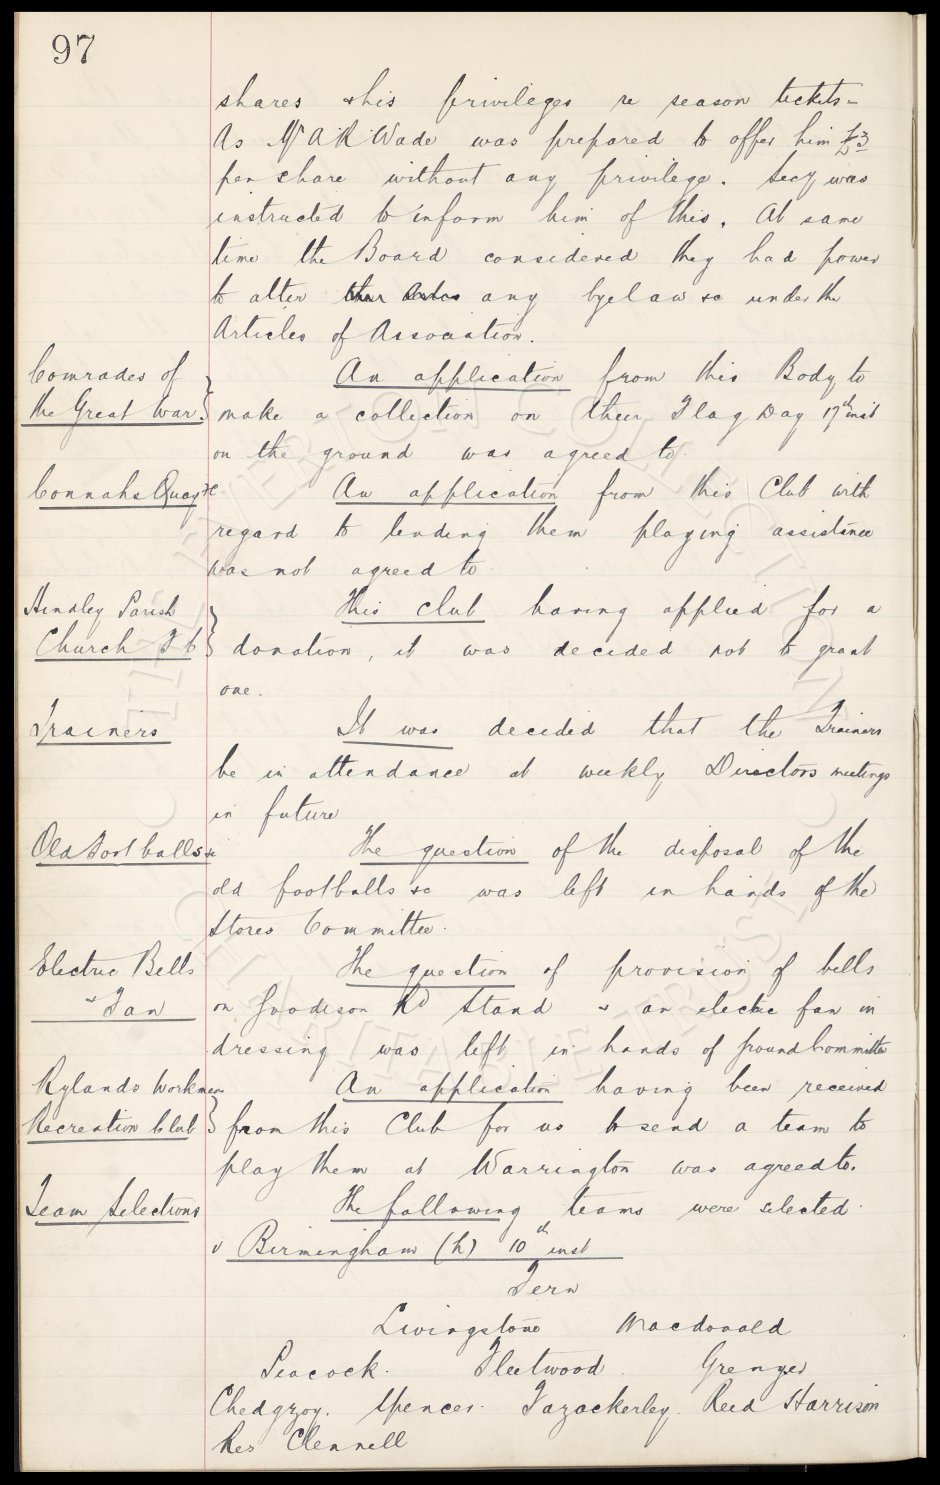 97
shares & his privileges re season tickets -
As Mr A R Wade was prepared to offer him £3
per share without any privilege. Secy was
instructed to inform him of this. At same
time the Board considered they had power
to alter any byelaw &c under the
Articles of Association.
Comrades of
the Great War.
An application from this Body to
make a collection on their Flag Day 17th inst
on the ground was agreed to.
Connahs Quay &c.
An application from this Club with
regard to lending them playing assistance
was not agreed to
Hindley Parish
Church F C
This club having applied for a
donation, it was decided not to grant
one.
Trainers
It was decided that the Trainers
be in attendance at weekly Directors meetings
in future
Old Footballs &c
The question of the disposal of the
old footballs &c was left in hands of the
Stores Committee.
Electric Bells
& Fan
The question of provision of bells
on Goodison Rd Stand & an electric fan in
dressing was left in hands of Ground Committee
Rylands Workmen
Recreation Club
An application having been received
from this Club for us to send a team to
play them at Warrington was agreed to.
Team Selections
The following teams were selected.
v Birmingham (h) 10th inst
Fern
Livingstone Macdonald
Peacock. Fleetwood. Grenyer
Chedgzoy. Spencer. Fazackerley. Reed Harrison
Res Clennell